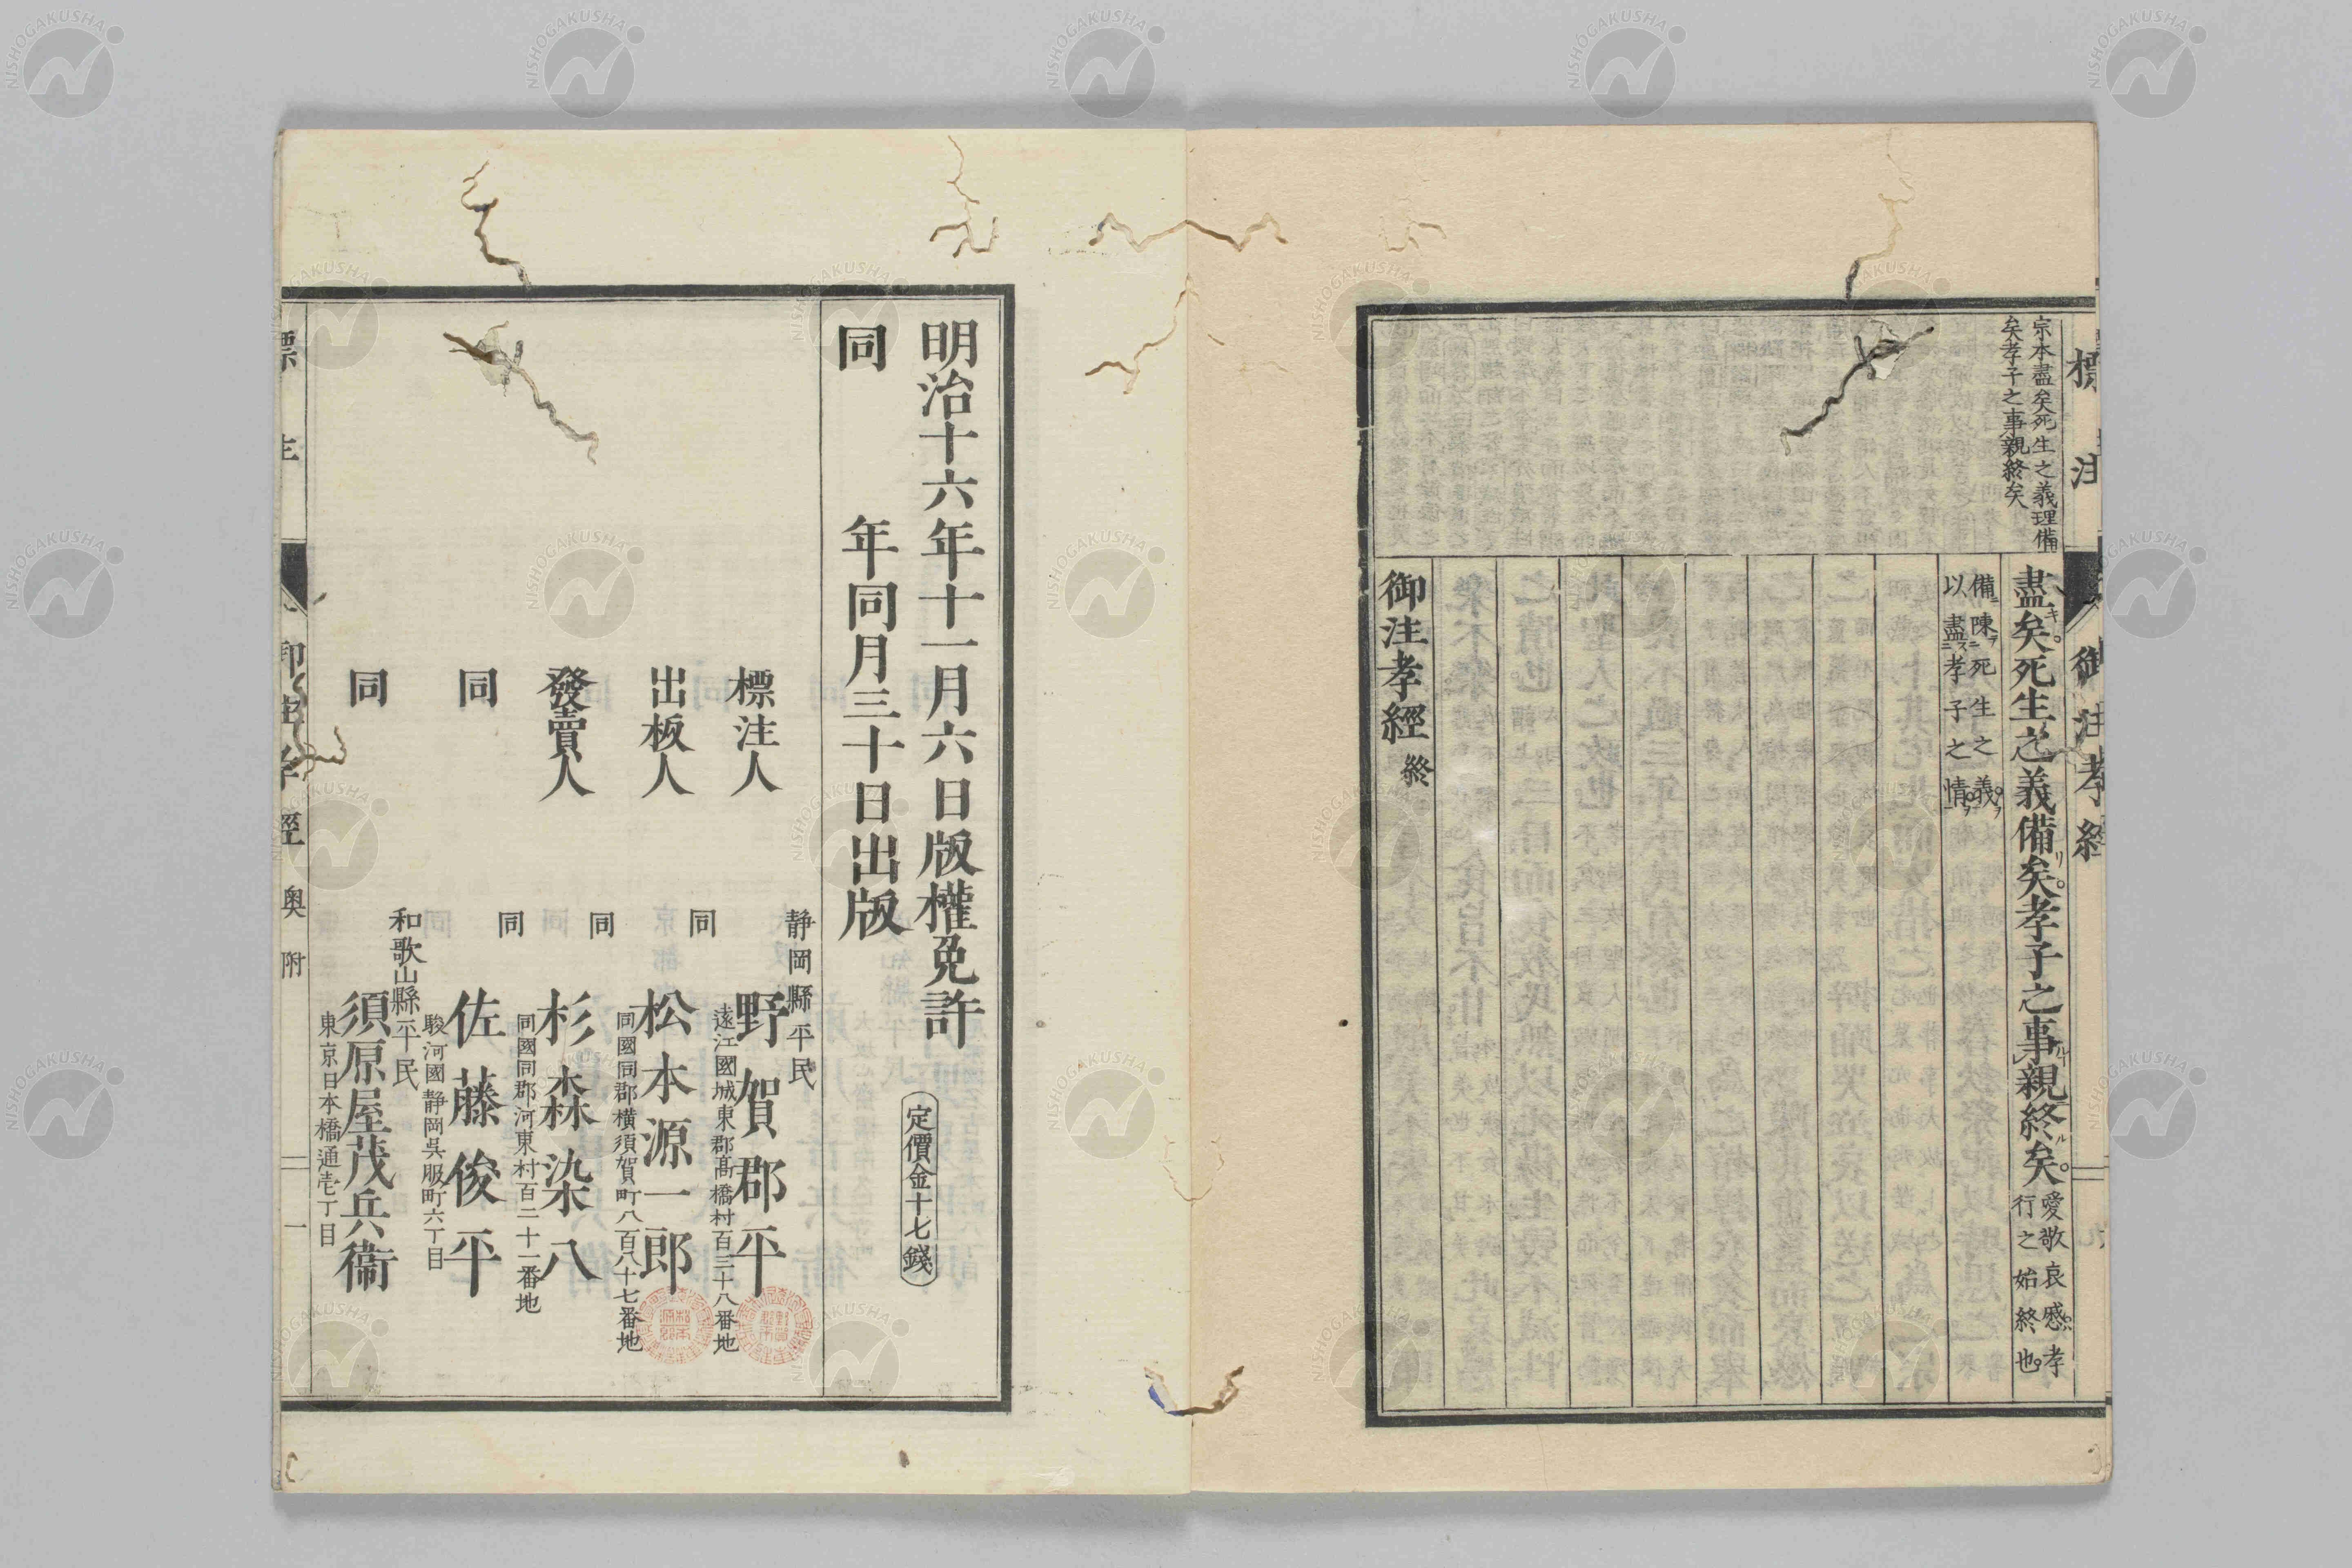 標注 御注孝經
宗本盡矣死生之義理備
矣孝子之事親終矣
盡矣死生之義備矣孝子之事親終矣
愛敬哀慼孝
行之始終也
備陳死生之義
以盡孝子之情
御注孝經 終
明治十六年十一月六日版權免許
同 年同月三十日出版
定價金十七錢
標注人
静岡縣平民
野賀郡平
遠江國城東郡髙橋村百三十八番地
出板人
同
松本源一郎
同國同郡横須賀町八百八十七番地
發賣人
同
杉森染八
同國同郡河東村百二十一番地
同
同
佐藤俊平
駿河國静岡呉服町六丁目
同
和歌山縣平民
須原屋茂兵衞
東京日本橋通壱丁目
標注 御注孝經 奥附 一
NISHOGAKUSHA